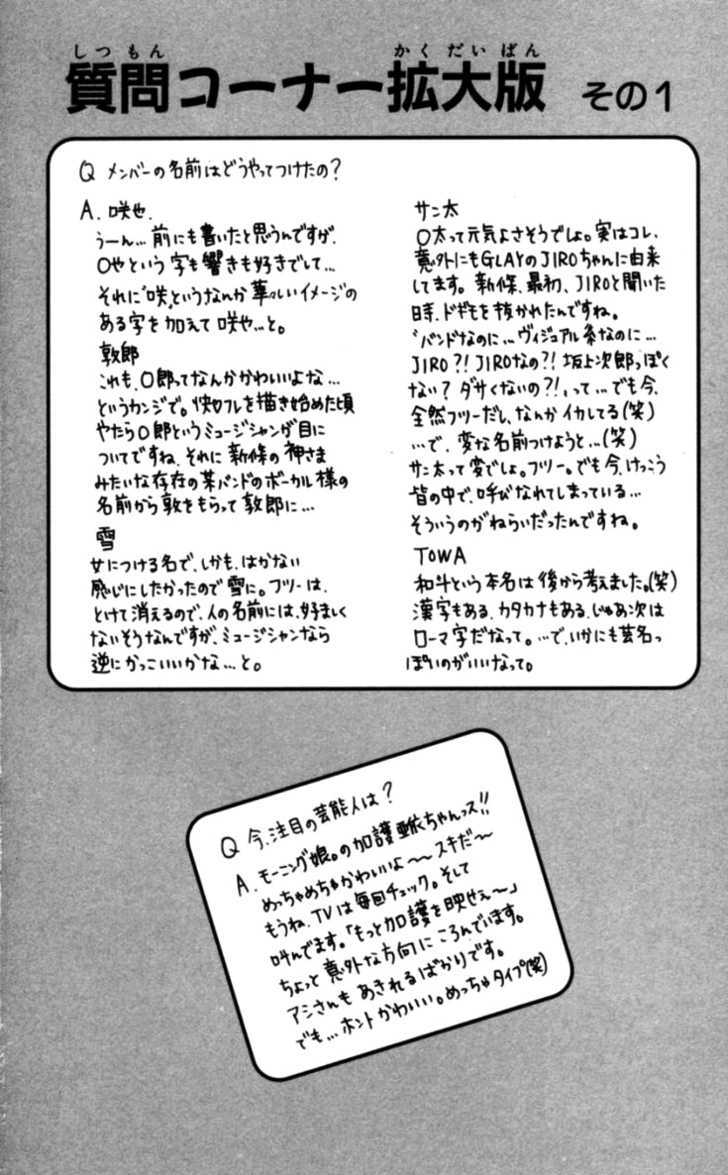 しつもん かくだいばん
質問コーナー拡大版 その1
Q メンバーの名前はどうやってつけたの?
A. 咲也.
うーん…前にも書いたと思うんですが、
〇やという字も響きも好きでして…
それに“咲”というなんか華々しいイメージの
ある字を加えて咲也…と。
敦郎
これも、〇郎ってなんかかわいいよな…
というカンジで。快フレを描き始めた頃
やたら〇郎というミュージシャンが目に
ついてですね、それに新條の神さま
みたいな存在の某バンドのボーカル様の
名前から敦をもらって敦郎に…
雪
女につける名で、しかも、はかない
感じにしたかったので雪に。フツーは、
とけて消えるので、人の名前には、好ましく
ないそうなんですが、ミュージシャンなら
逆にかっこいいかな…と。
サン太
〇太って元気よさそうでしょ。実はコレ、
意外にもGLAYのJIROちゃんに由来
してます。新條、最初、JIROと聞いた
時、ドギモを抜かれたんですね。
“バンドなのに…ヴィジュアル系なのに…
JIRO?!JIROなの?!坂上次郎っぽく
ない?ダサくないの?!”って…でも今、
全然フツーだし、なんかイカしてる(笑)
…で、変な名前つけようと…(笑)
サン太って変でしょ。フツー。でも今、けっこう
皆の中で、呼びなれてしまっている…
そういうのがねらいだったんですね。
TOWA
和斗という本名は後から考えました。(笑)
漢字もある、カタカナもある、じゃあ次は
ローマ字だなって。…で、いかにも芸名っ
ぽいのがいいなって。
Q 今、注目の芸能人は?
A. モーニング娘。の加護亜依ちゃんっス!!
めっちゃめちゃかわいいよ〜〜スキだ〜
もうね、TVは毎回チェック。そして
叫んでます。「もっと加護を映せぇ〜」
ちょっと意外な方向にころんでいます。
アシさんもあきれるばかりです。
でも…ホントかわいい。めっちゃタイプ(笑)